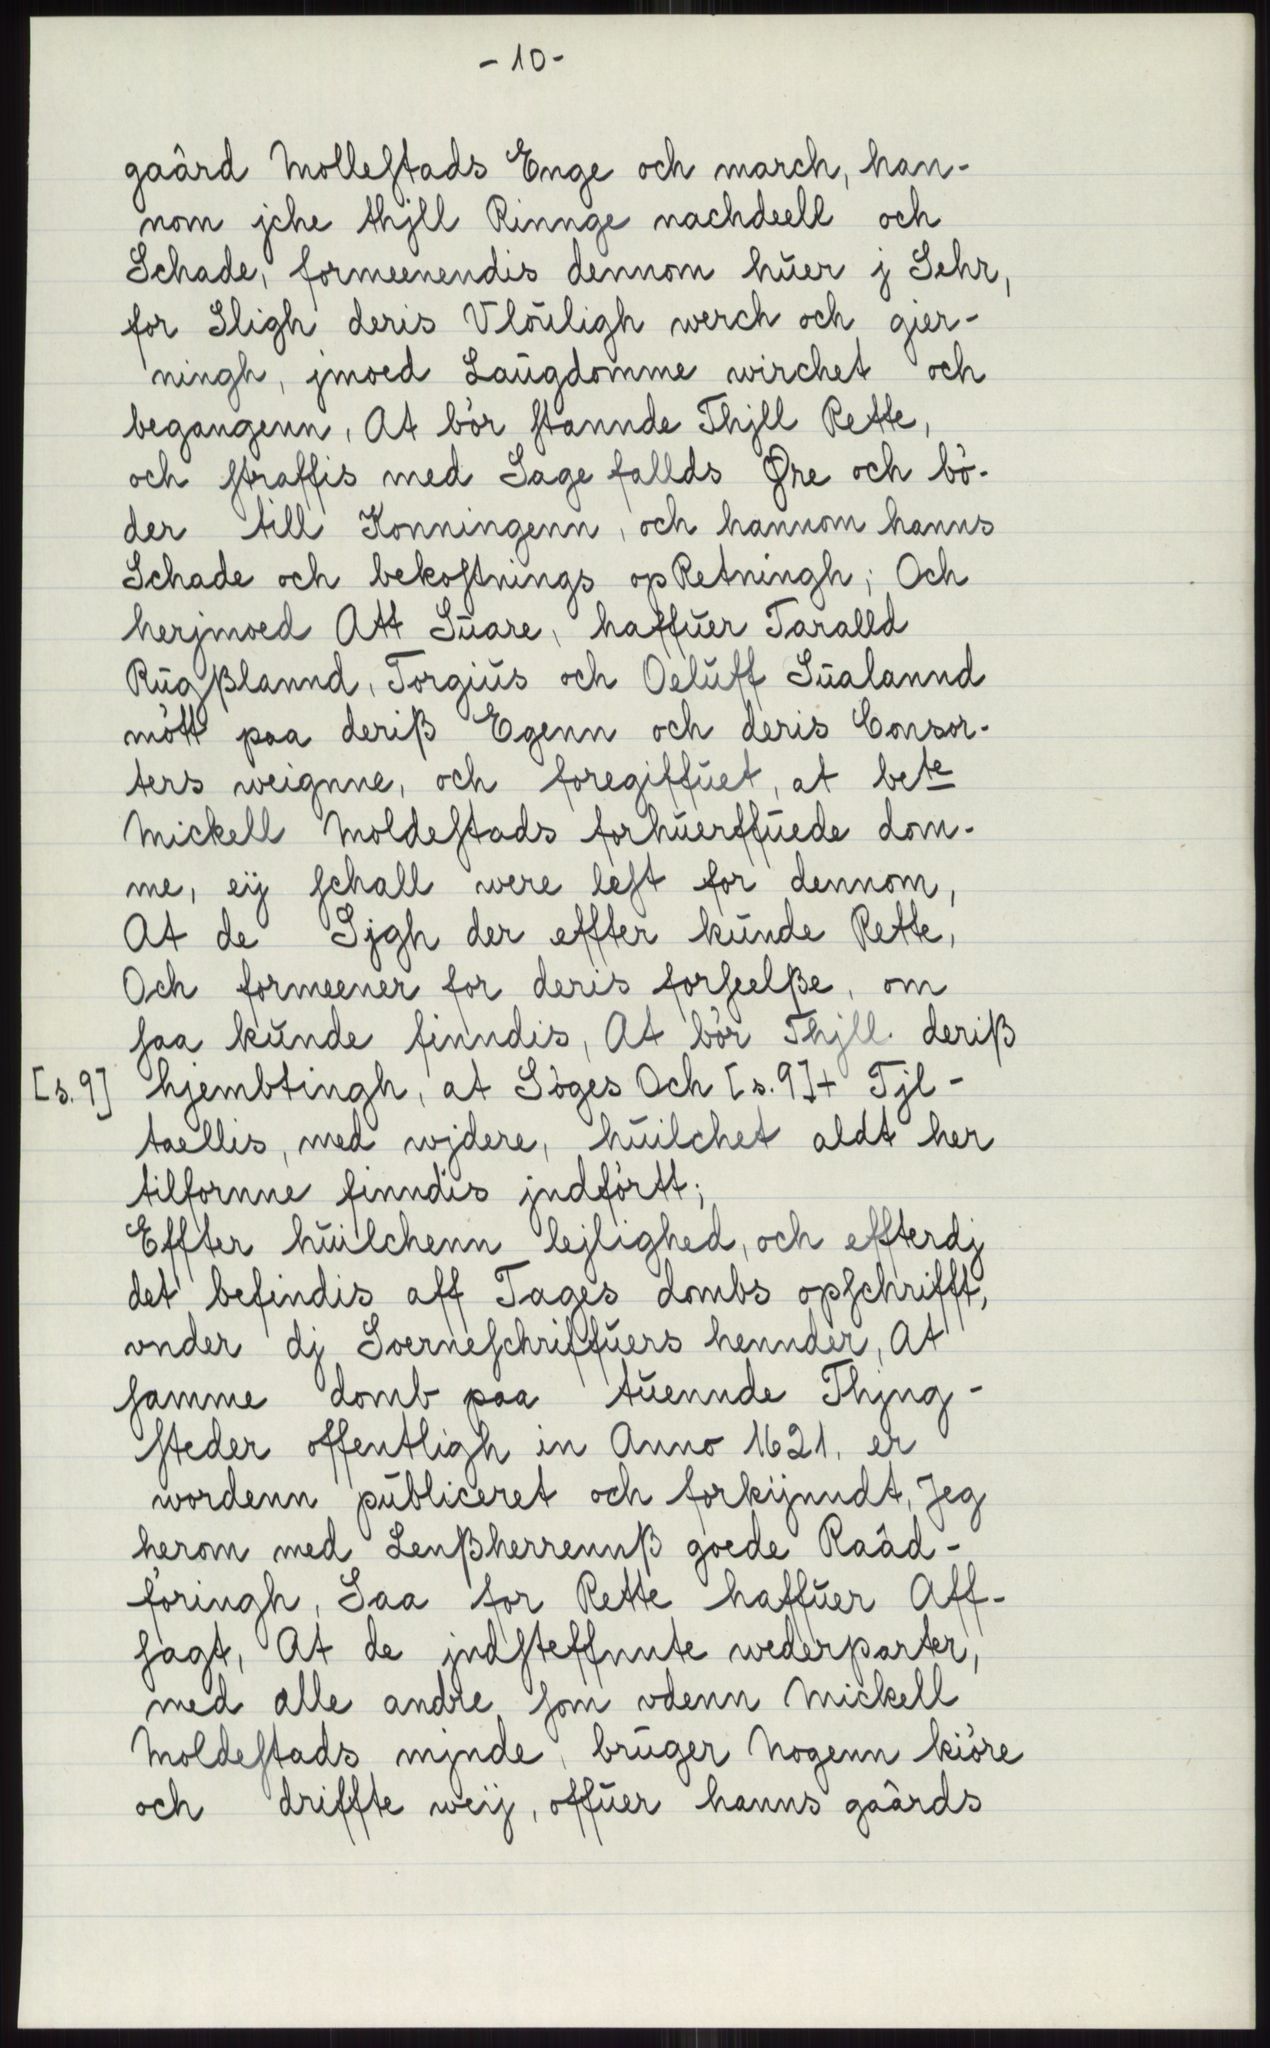 - 10 -
gaård Mollestads Enge och march, han-
nom jche thjll Rinnge nachdeell och
Schade, formeenendis dennom huer j Sehr,
for Sligh deris Vlouligh werch och gier-
ningh, jmoed Laugdomme wirchet och
begangenn, At bör stannde Thjll Rette,
och straffis med Sage fallds Øre och bö-
der till Konningenn, och hannom hanns
Schade och bekostnings opRetningh; Och
herjmoed Att Suare, haffuer Taralld
Rugßlannd, Torgius och Oeluff Sualannd
mött paa deriß Egenn och deris Consor-
ters weignne, och foregiffuet, at bete
Mickell Moldestads forhuerffuede dom-
me, eij schall were lest for dennom,
At de Sjgh der effter kunde Rette,
Och formeener for deris forseelße, om
saa kunde finndis, At bör Thjll deriß
[s. 9] hjembtingh, at Söges Och [s. 9]+ Tjl-
taellis, med wjdere, huilchet aldt her
tilfornne finndis jndförtt;
Effter huilchenn lejlighed, och effterdj
det befindis aff Tages dombs opschrifft,
vnder dj Soerneschriffuers hennder, At
samme domb paa tuennde Thjng-
steder offentligh in Anno 1621. er
wordenn publiceret och forkijnndt, Jeg
herom med Lenßherrennß goede Raåd-
föringh, Saa for Rette haffuer Aff-
sagt, At de jndsteffnnte wederparter,
med alle andre som vdenn Mickell
Moldestads minde, bruger Nogenn kiöre
och driffte weij, offuer hanns gaårds